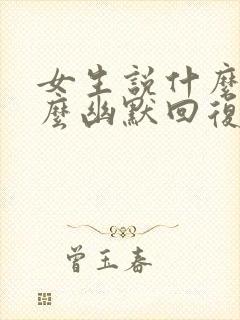 女生説什麼
麼幽默回復
曾玉春